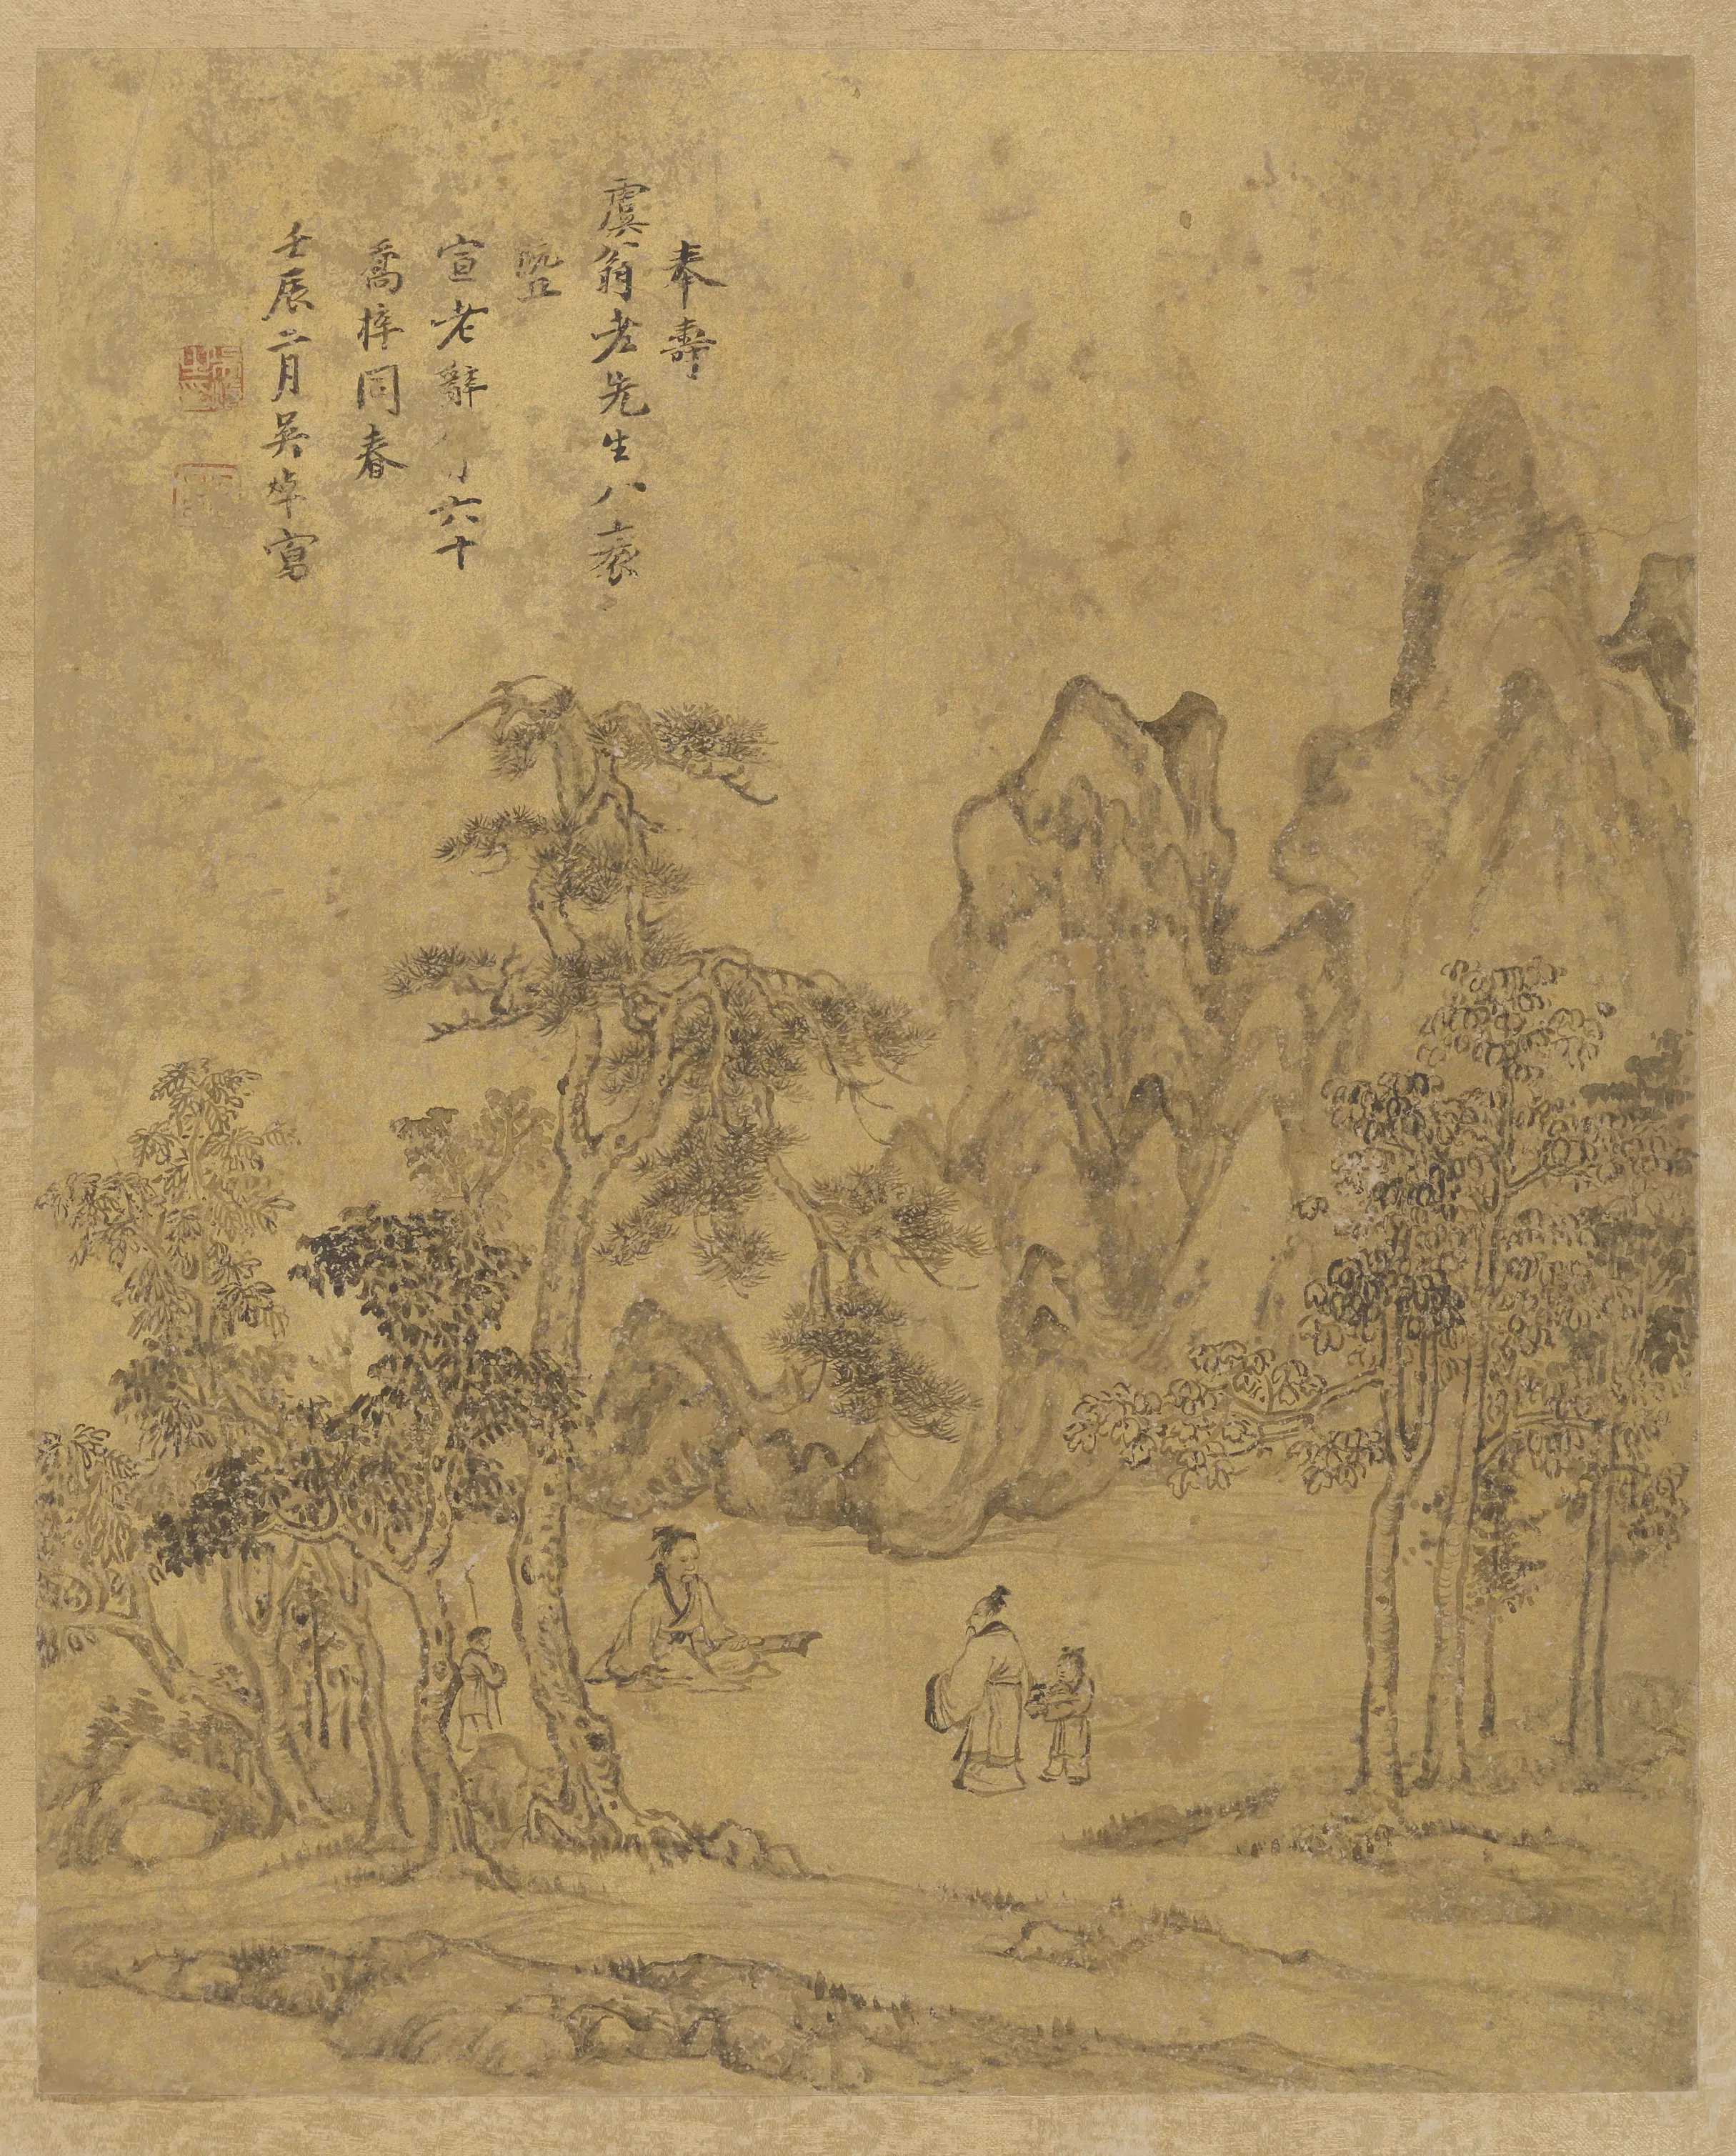 奉壽
虞翁老先生八袠
暨
宣老辭 六十
喬梓同春
壬辰二月吳焯寫